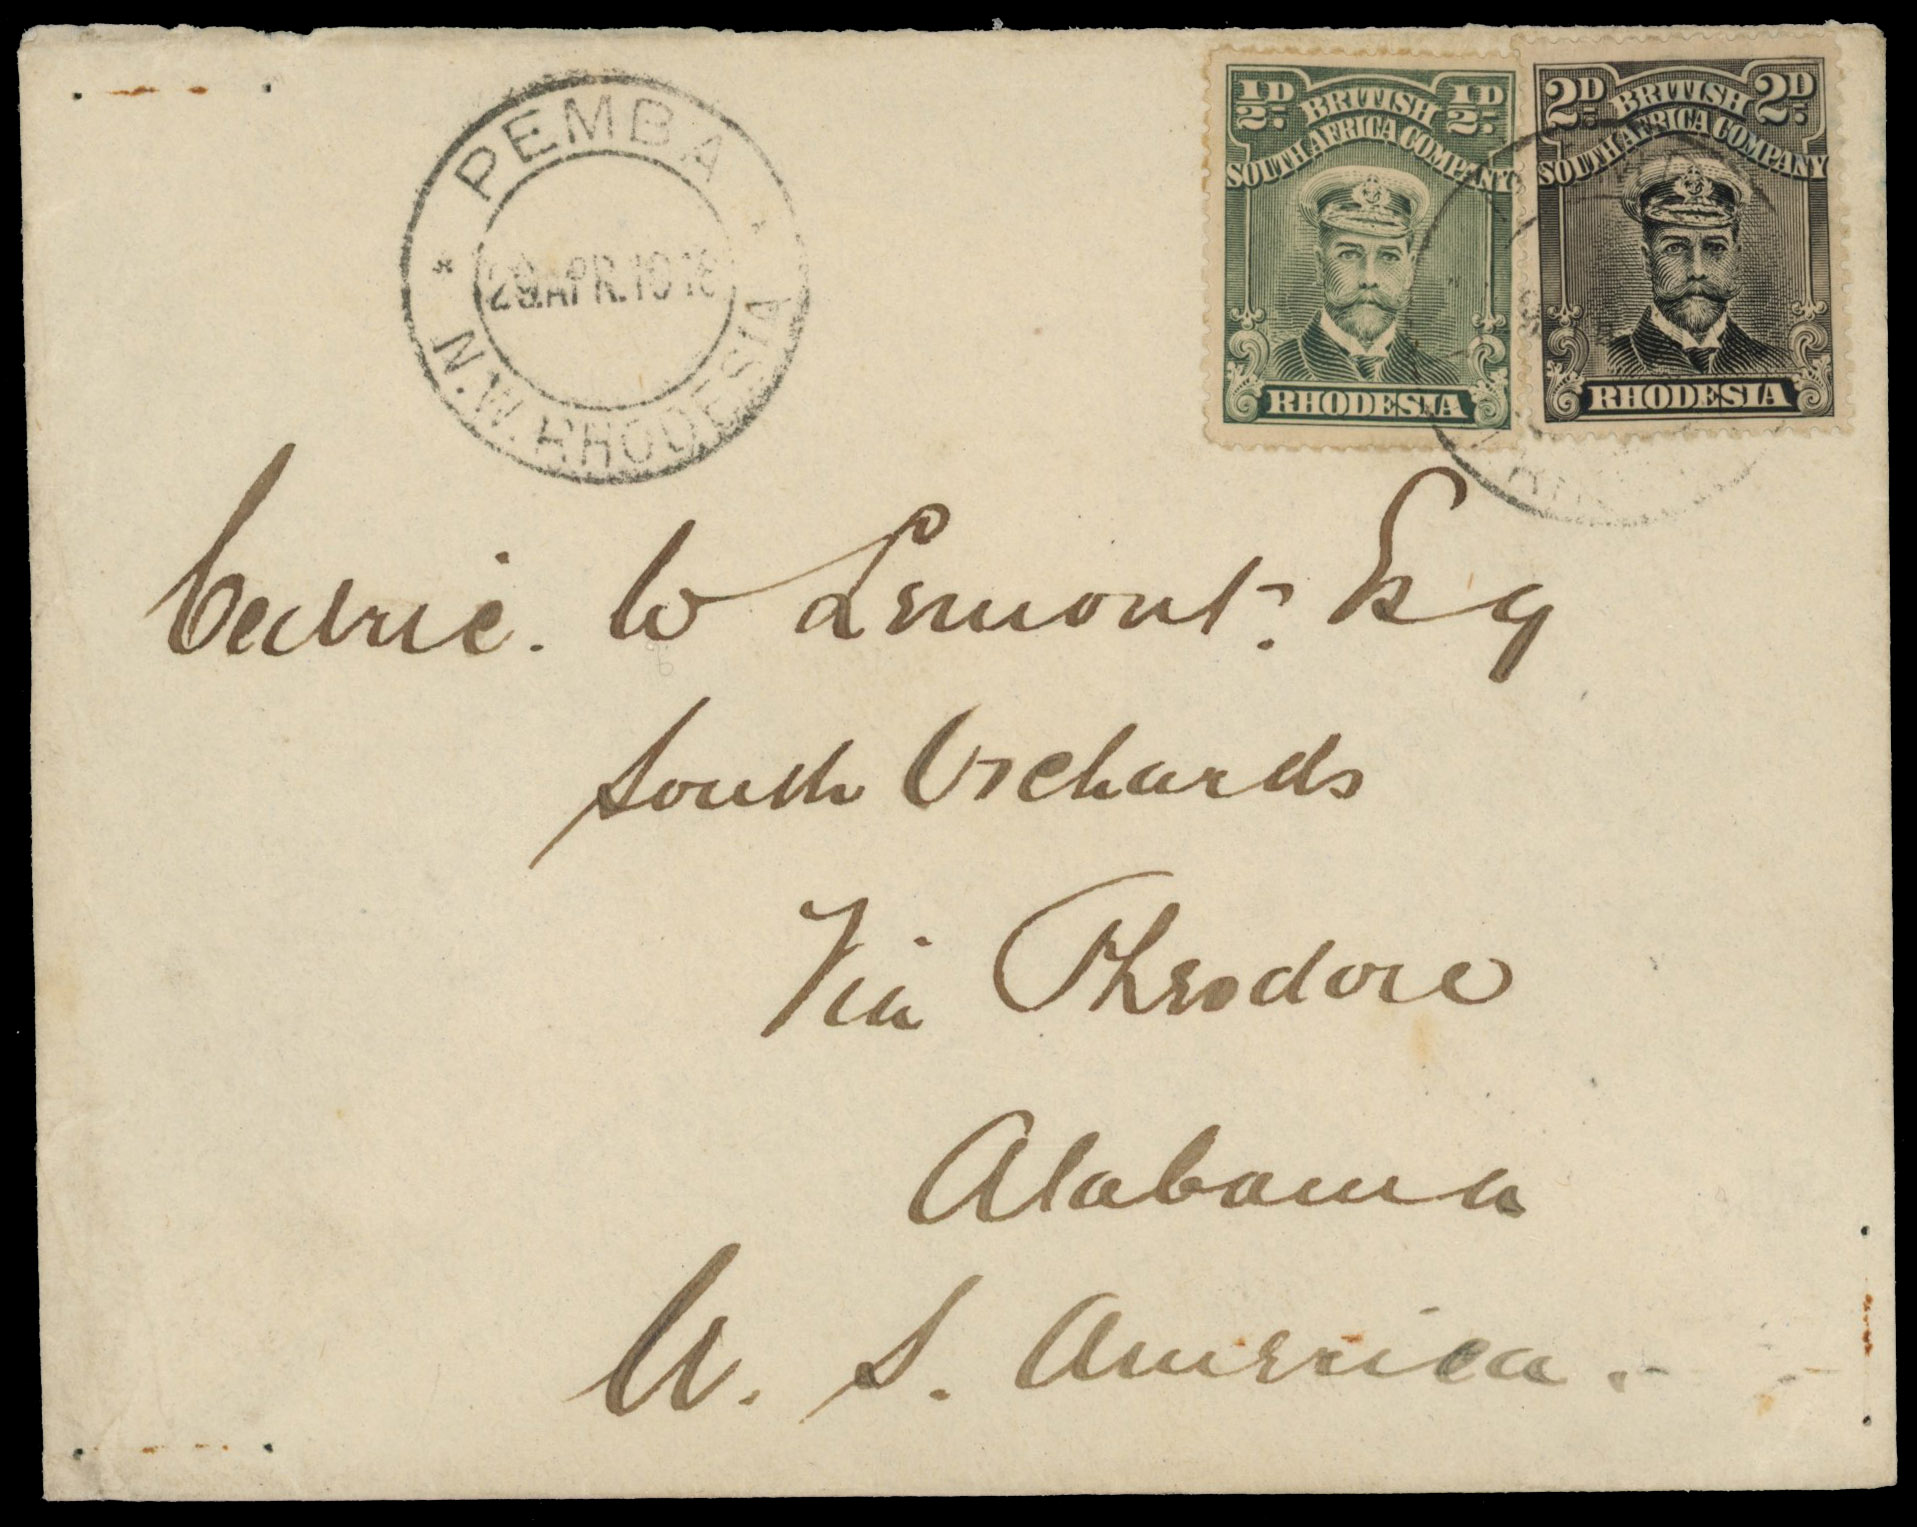 PEMBA
29.APR.1918
N.W. RHODESIA
½D BRITISH ½D
SOUTH AFRICA COMPANY
RHODESIA
2D BRITISH 2D
SOUTH AFRICA COMPANY
RHODESIA
Cedric. W Lemont. Esq
South Orchards
Via Theodore
Alabama
U. S. America.